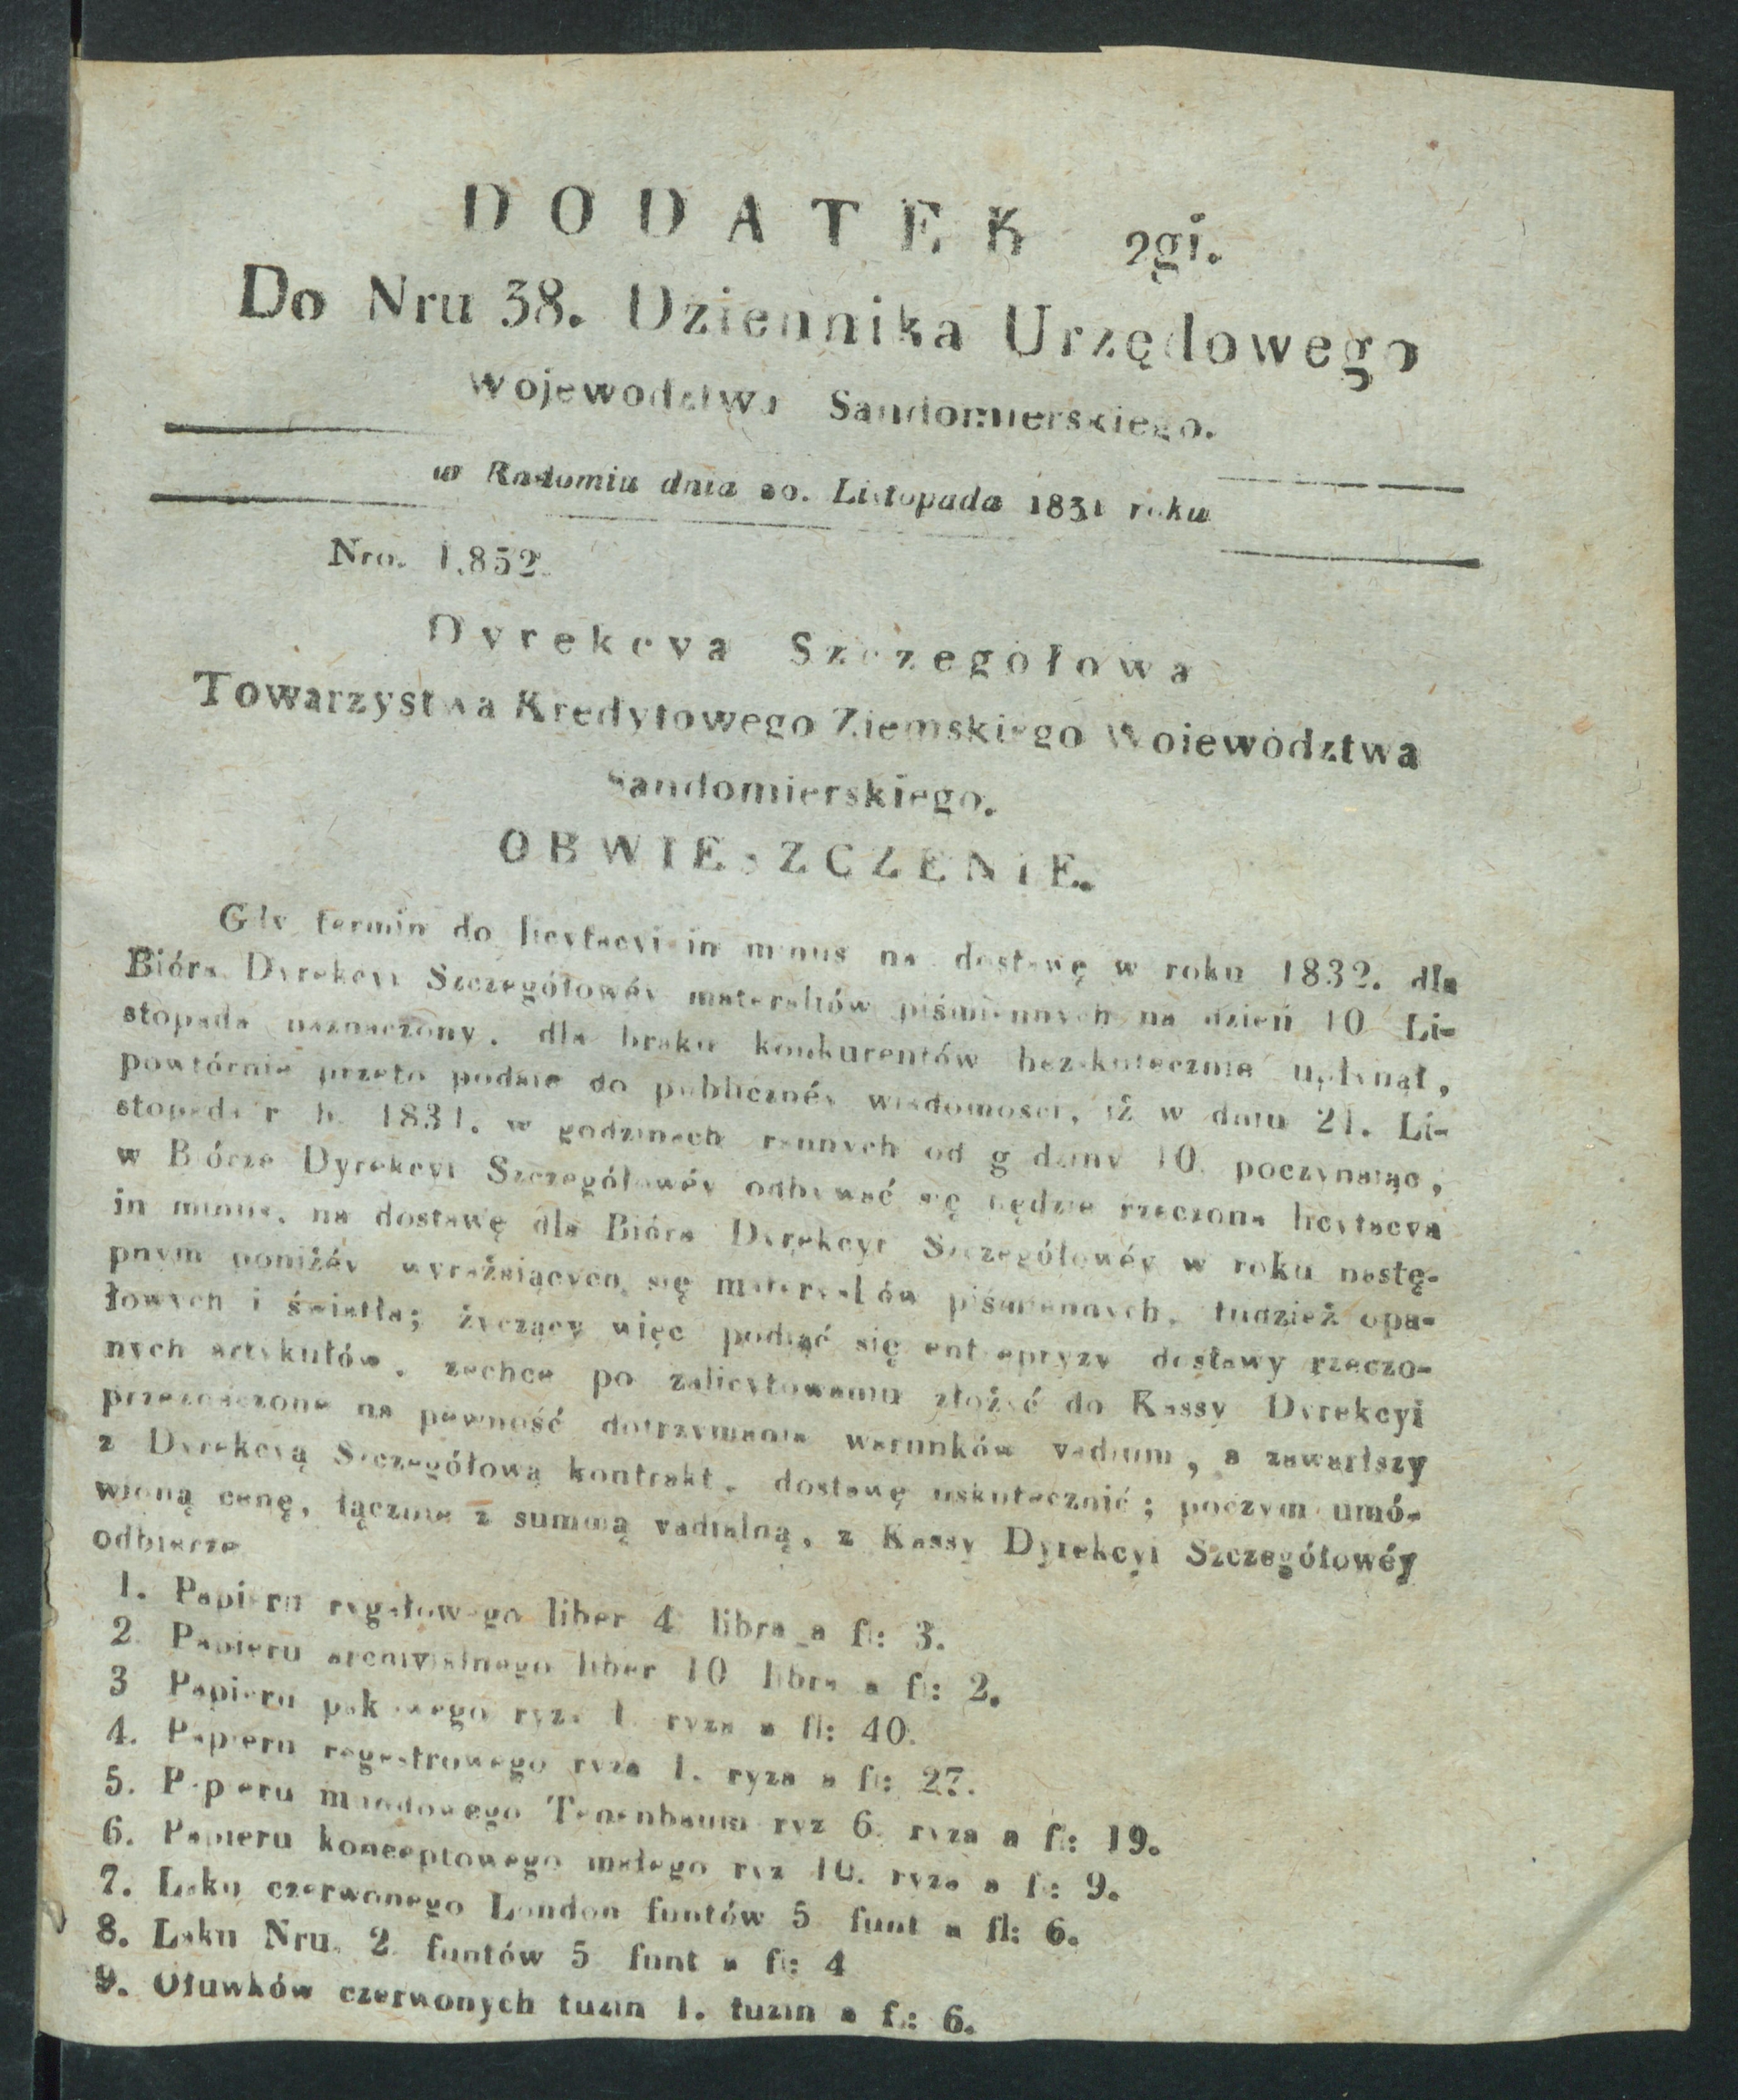 DODATEK 2gi.
Do Nru 38. Dziennika Urzędowego
Wojewodztwa Sandomierskiego.
w Radomiu dnia 20. Listopada 1831 roku
Nro. 1,852.
Dyrekcya Szczegółowa
Towarzystwa Kredytowego Ziemskiego Woiewództwa
Sandomierskiego.
OBWIESZCZENIE.
Gdy termin do licytacyi in minus na dostawę w roku 1832. dla
Bióra Dyrekcyi Szczegółowéy materałów piśmiennych na dzień 10 Li-
stopada naznaczony, dla braku konkurentów bezskutecznie upłynął,
powtórnie przeto podaie do publicznéy wiadomosci, iż w dniu 21. Li-
stopada r b. 1831. w godzinach rannych od godziny 10. poczynaiąc,
w Biórze Dyrekcyi Szczegółowéy odbywać się będzie rzeczona licytacya
in minus, na dostawę dla Bióra Dyrekcyi Szczegółowéy w roku nastę-
pnym poniżéy wyrażaiących się materyałów piśmiennych, tudzież opa-
łowych i światła; życzący więc podiąć się entrepryzy dostawy rzeczo-
nych artykułów, zechce po zalicytowaniu złożyć do Kassy Dyrekcyi
przeznaczone na pewność dotrzymania warunków vadium, a zawarłszy
z Dyrekcyą Szczegółową kontrakt, dostawę uskutecznić; poczym umó-
wioną cenę, łącznie z summą vadialną, z Kassy Dyrekcyi Szczegółowéy
odbierze
1. Papieru rygałowego liber 4 libra a fl: 3.
2. Papieru archivialnego liber 10 libra a fl: 2.
3 Papieru pakowego ryza 1. ryza a fl: 40.
4. Papieru regestrowego ryza 1. ryza a fl: 27.
5. Papieru mundowego Tenenbaum ryz 6. ryza a fl: 19.
6. Papieru konceptowego małego ryz 10. ryza a fl: 9.
7. Laku czerwonego London funtów 5 funt a fl: 6.
8. Laku Nru. 2 funtów 5 funt a fl: 4
9. Ołuwków czerwonych tuzin 1. tuzin a fl: 6.